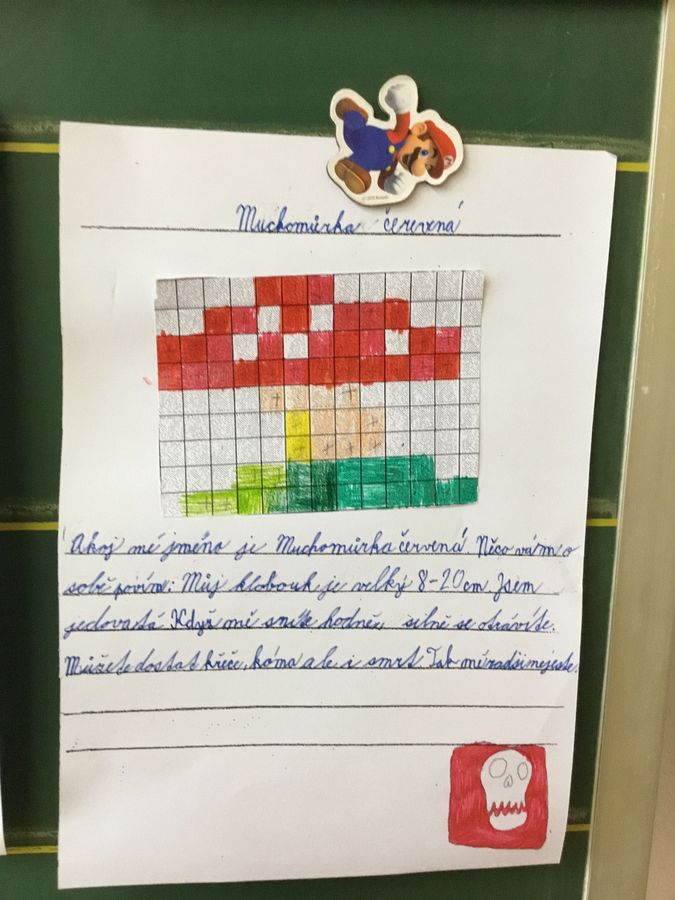 Muchomůrka červená
Ahoj mé jméno je Muchomůrka červená. Něco vám o
sobě povím: Můj klobouk je velký 8-20cm. Jsem
jedovatá. Když mě sníte hodně, silně se otrávíte.
Můžete dostat křeče, kóma ale i smrt. Tak mě radši nejeste.